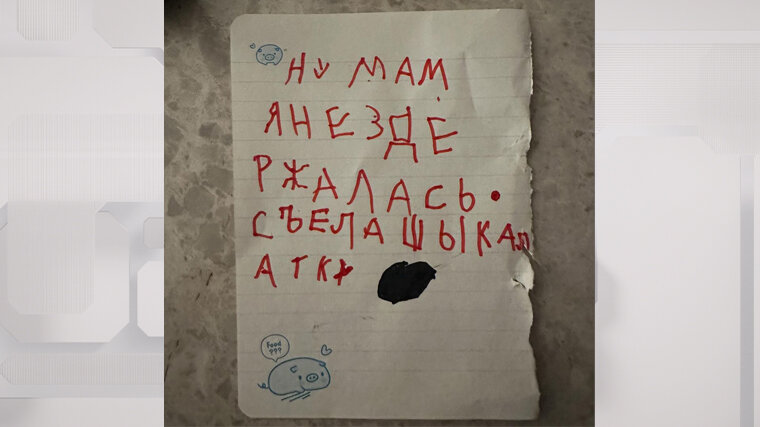 НУ МАМ
Я НЕ ЗДЕ
РЖАЛАСЬ.
СЪЕЛА ШЫКАЛ
АТКУ
Food
???